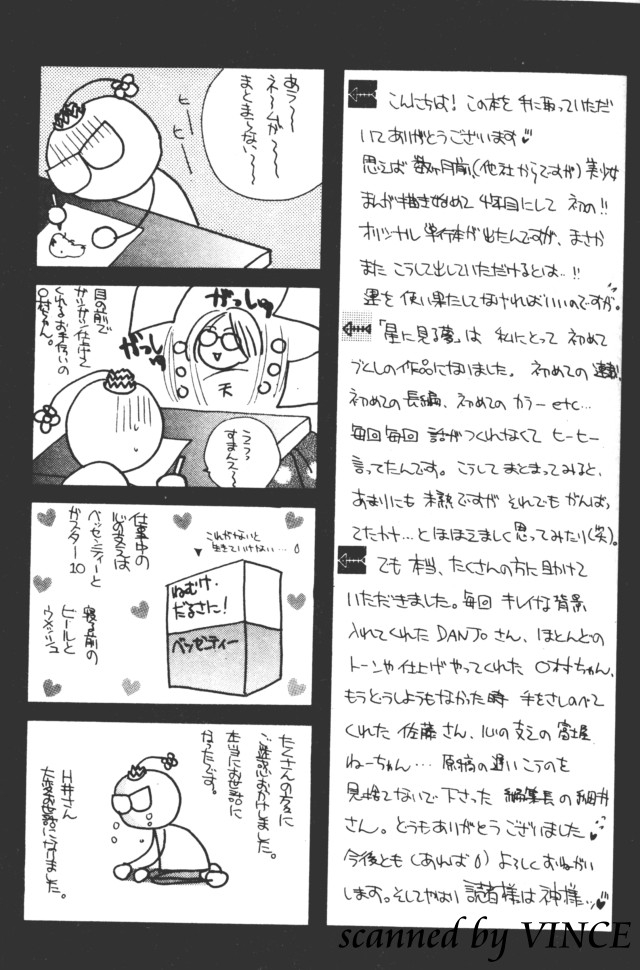 こんにちは！この本を手に取っていただ
いてありがとうございます
思えば数ヵ月前、(他社からですが)美少女
まんが描き始めて4年目にして初の!!
オリジナル単行本が出たんですが、まさか
またこうして出していただけるとは..!!
運を使い果たしてなければいいのですが。
「星に見る夢」は私にとって初めて
づくしの作品になりました。初めての連載、
初めての長編、初めてのカラーetc…
毎回毎回話がつくれなくてヒーヒー
言ってたんです。こうしてまとまってみると、
あまりにも未熟ですがそれでもがんばっ
てたカナ…とほほえましく思ってみたり(笑)。
でも本当、たくさんの方に助けて
いただきました。毎回キレイな背景
入れてくれたDANJOさん、ほとんどの
トーンや仕上げやってくれた○村ちゃん、
もうどうしようもなかった時手をさしのべて
くれた佐藤さん、心の支えの富士屋
ねーちゃん…原稿の遅いこうのを
見捨てないで下さった編集長の細井
さん。どうもありがとうございました
今後とも(あれば)よろしくおねがい
します。そしてやはり読者様は神様..
あう〜〜
ネームが〜〜
まとまらない〜〜〜
ヒー
ヒー
目の前で
ガシガシ仕上げて
くれるお手伝いの
○村ちゃん。
がっしゅ
がっしゅ
天
ううっ
すまんえ〜
仕事中の
心の支えは
ベッセンティーと
ガスター10
寝る前の
ビールと
ウメッシュ
これがないと
生きていけない…
ねむけ・
だるさに！
ベッセンティー
たくさんの方々に
ご迷惑おかけしました。
本当にお世話に
なったです。
H井さん
大変お世話になりました。
scanned by VINCE